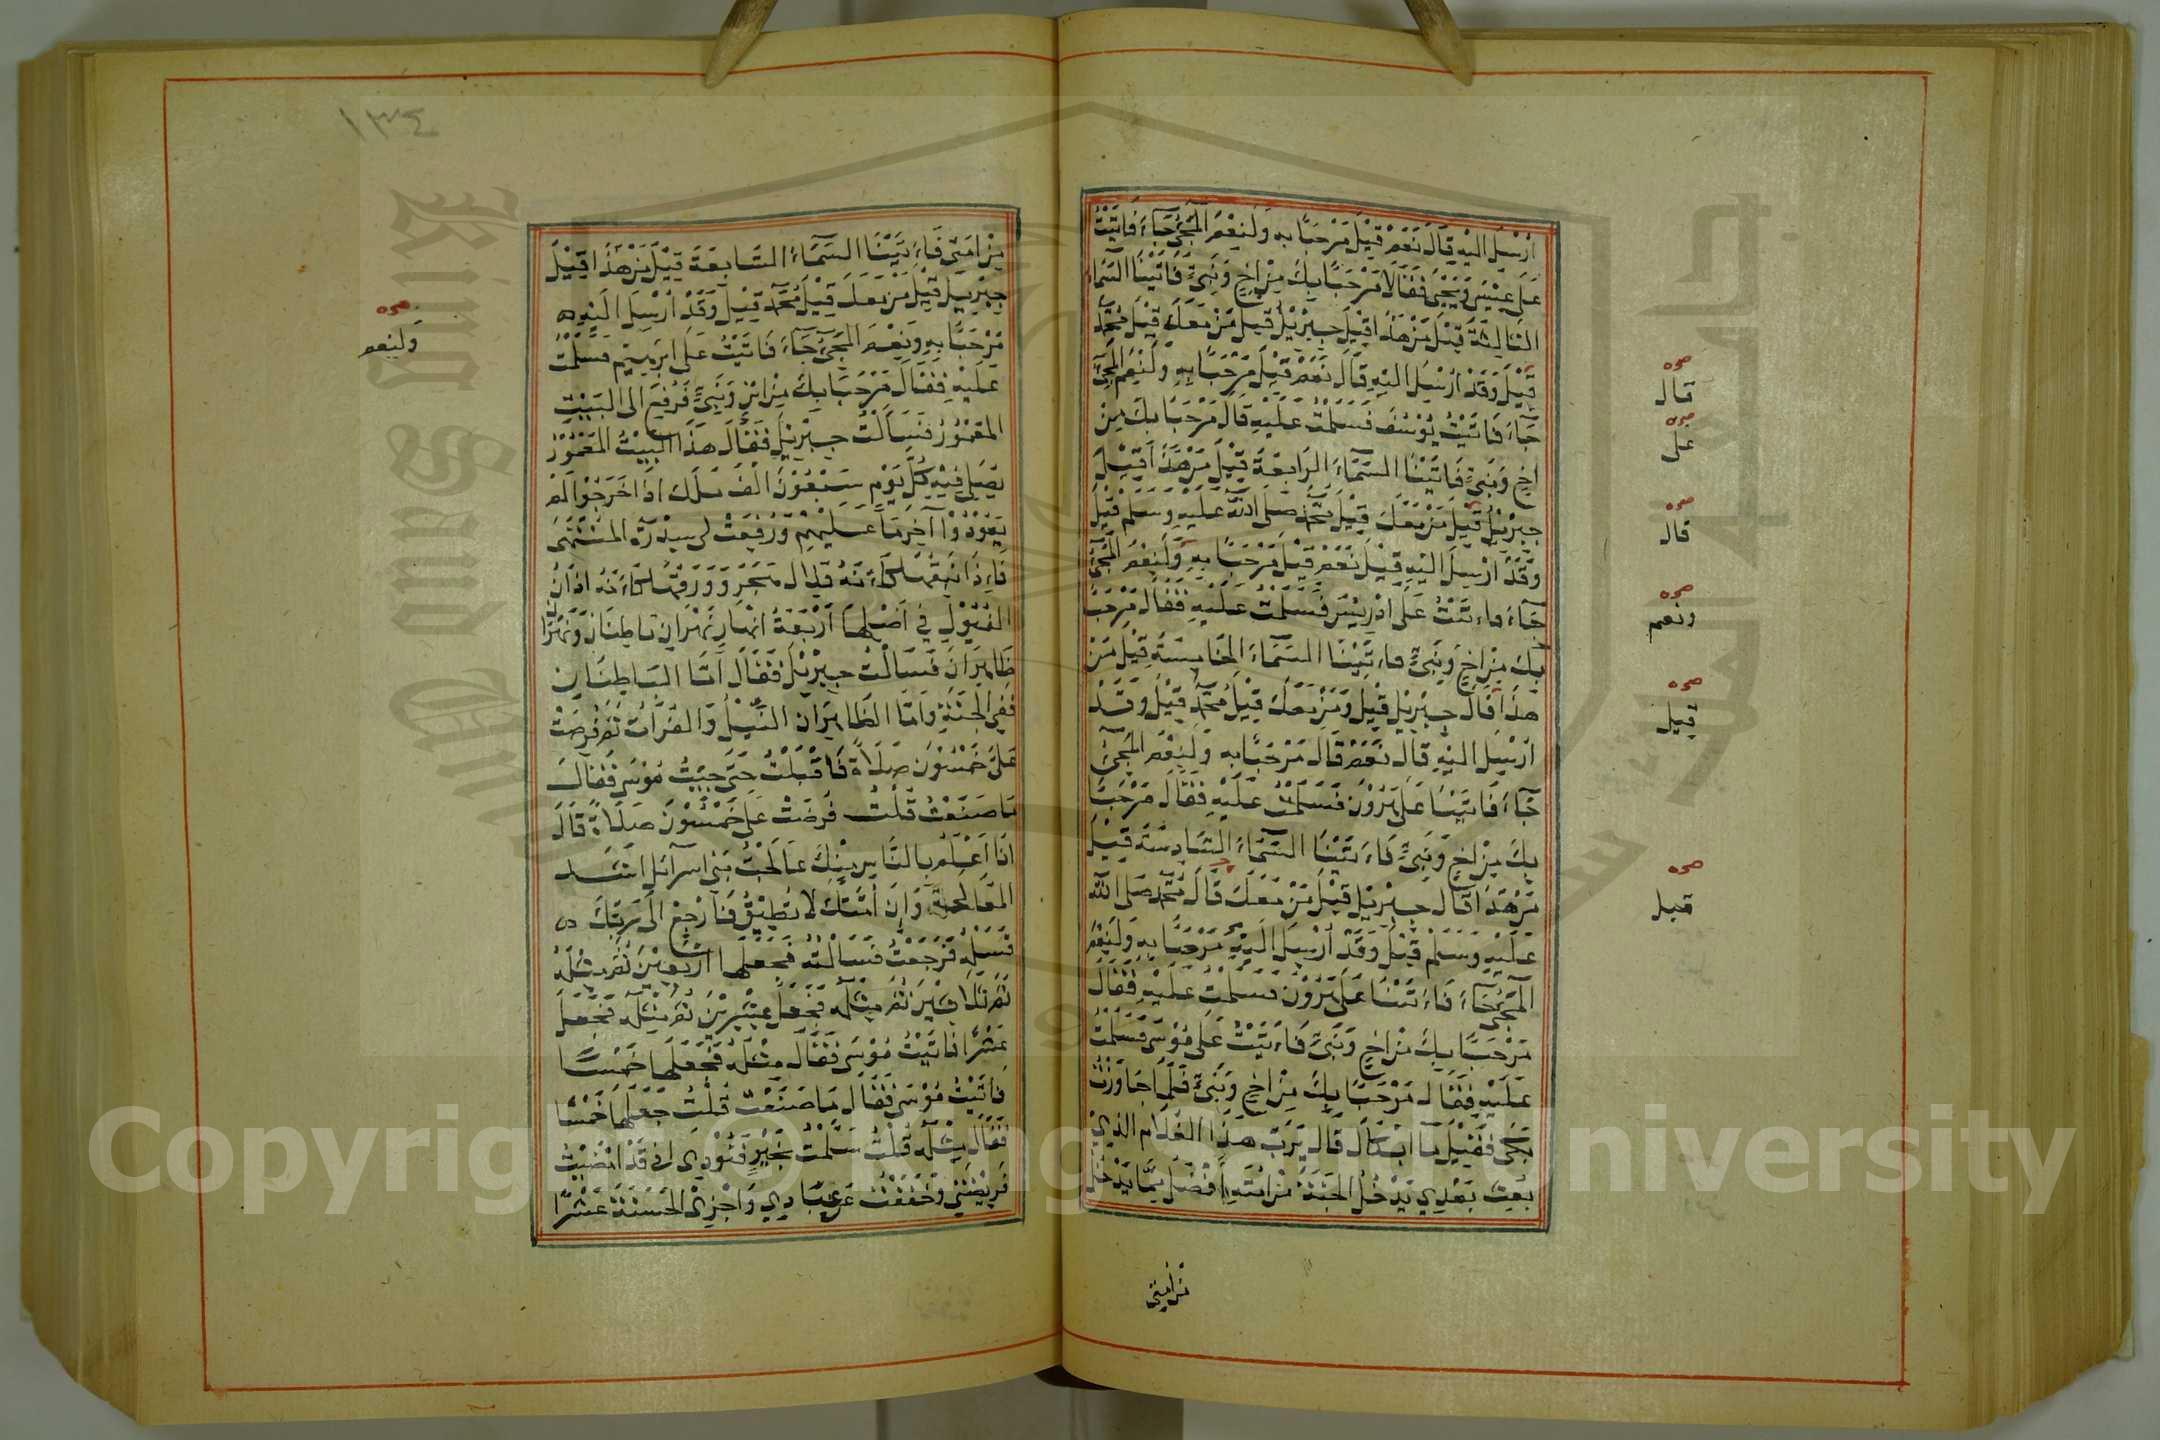 ارسل اليه قال نعم قيل مرحبا به ولنعم المجئ جاء فاتيت
على عيسى ويحيى فقالا مرحبا بك من اخ ونبي فاتينا السماء
الثالثة قيل من هذا قيل جبريل قيل من معك قيل محمد
قيل وقد ارسل اليه قال نعم قيل مرحبا به ولنعم المجئ
جاء فاتيت يوسف فسلمت عليه قال مرحبا بك من
اخ ونبي فاتينا السماء الرابعة قيل من هذا قيل
جبريل قيل من معك قيل محمد صلى الله عليه وسلم قيل
وقد ارسل اليه قيل نعم قيل مرحبا به ولنعم المجئ
جاء فاتيت على ادريس فسلمت عليه فقال مرحبا
بك من اخ ونبي فاتينا السماء الخامسة قيل من
هذا قال جبريل قيل ومن معك قيل محمد قيل وقد
ارسل اليه قال نعم قال مرحبا به ولنعم المجئ
جاء فاتينا على هرون فسلمت عليه فقال مرحبا
بك من اخ ونبي فاتينا السماء السادسة قيل
من هذا قال جبريل قيل من معك قال محمد صلى الله
عليه وسلم قيل وقد ارسل اليه مرحبا به ولنعم
المجئ جاء فاتينا على هرون فسلمت عليه فقال
مرحبا بك من اخ ونبي فاتيت على موسى فسلمت
عليه فقال مرحبا بك من اخ ونبي فلما جاوزت
بكى فقيل ما ابكاك قال يرب هذا الغلام الذي
بعث بعدي يدخل الجنة من امته افضل مما يدخل
من امتي
صحه
قال
صحه
على
صحه
قال
صحه
ونعم
صحه
قيل
صحه
قيل
١٣٤
من امتي فاتينا السماء السابعة قيل من هذا قيل
جبريل قيل من معك قيل محمد قيل وقد ارسل اليه
مرحبا به ونعم المجئ جاء فاتيت على ابرهيم فسلمت
عليه فقال مرحبا بك من ابن ونبي فرفع الى البيت
المعمور فسالت جبريل فقال هذا البيت المعمور
يصلي فيه كل يوم سبعون الف ملك اذا خرجوا لم
يعودوا آخر ما عليهم ورفعت لي سدرة المنتهى
فاذا نبقها كانه قلال هجر وورقها كانه اذان
الفيول في اصلها اربعة انهار نهران باطنان ونهران
ظاهران فسالت جبريل فقال اما الباطنان
ففي الجنة واما الظاهران النيل والفرات ثم فرضت
علي خمسون صلاة فاقبلت حتى جيت موسى فقال
ما صنعت قلت فرضت علي خمسون صلاة قال
انا اعلم بالناس منك عالجت بني اسرآئل اشد
المعالجة وان امتك لا تطيق فارجع الى ربك
فسله فرجعت فسالته فجعلها اربعين ثم مثله
ثم ثلاثين ثم مثله فجعل عشرين ثم مثله فجعل
عشرا فاتيت موسى فقال مثله فجعلها خمسا
فاتيت موسى فقال ما صنعت قلت جعلها خمسا
فقال مثله قلت سلمت بخير فنودي اني قد امضيت
فريضتي وخففت عن عبادي واجزي الحسنة عشرا
صحه
ولنعم
Copyright © King Saud University